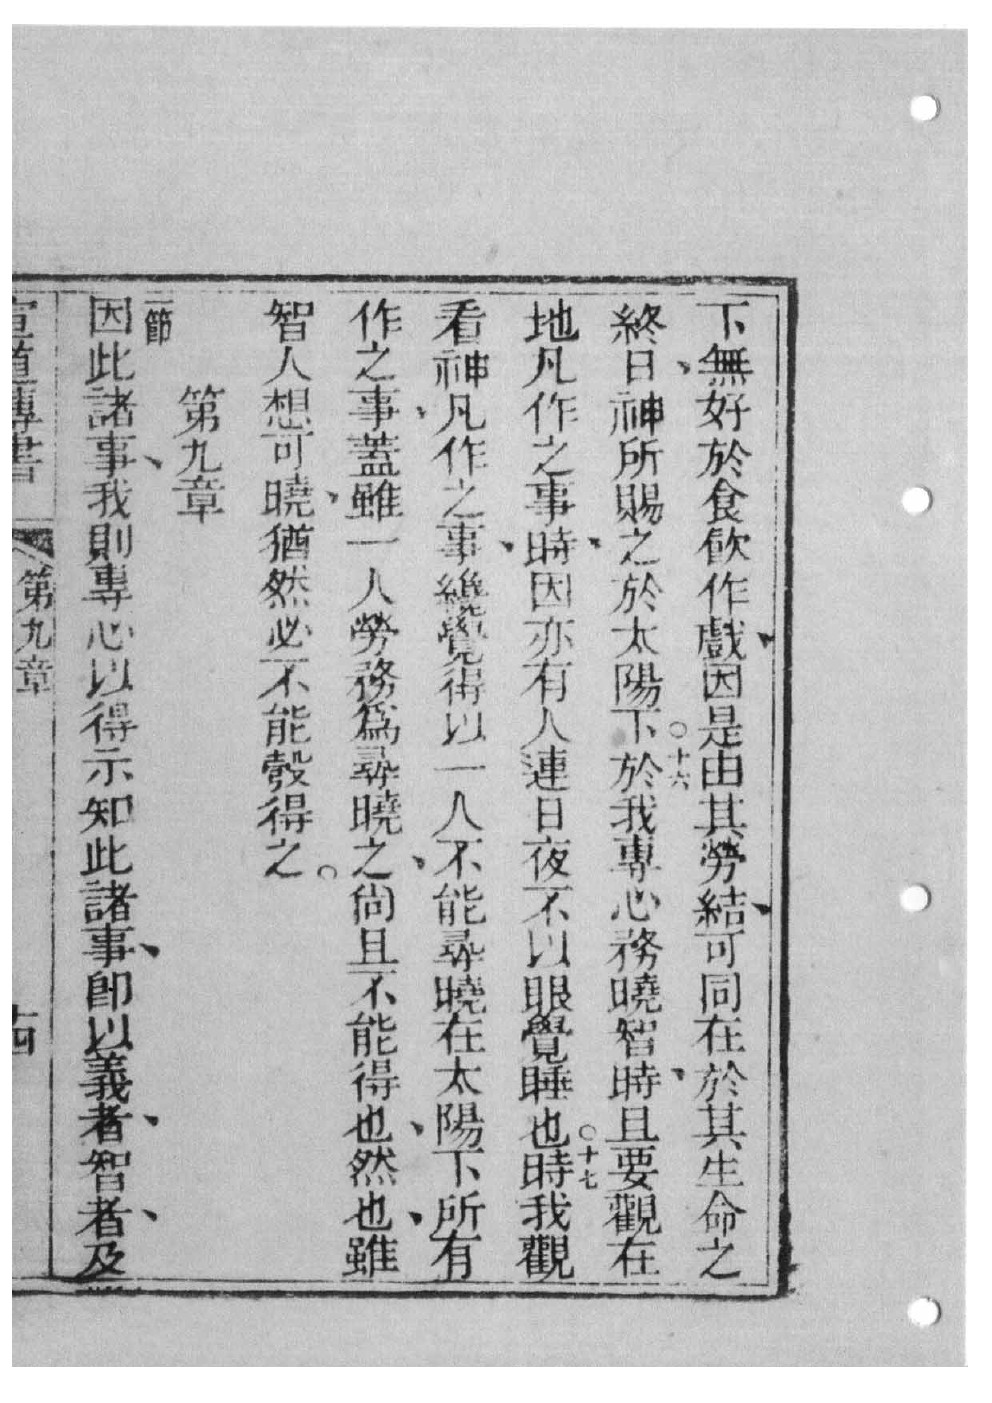 下無好於食飲作戲、因是由其勞結、可同在於其生命之
終日、神所賜之於太陽下○十六於我專心務曉智時、且要觀在
地凡作之事時、因亦有人連日夜不以眼覺睡也○十七時我觀
看神凡作之事、纔覺得以一人不能尋曉在太陽下所有
作之事、蓋雖一人勞務為尋曉之、尙且不能得也、然也、雖
智人想可曉、猶然必不能彀得之○
第九章
一節
因此諸事、我則專心以得示知此諸事、卽以義者、智者、及
宣道傳書 第九章